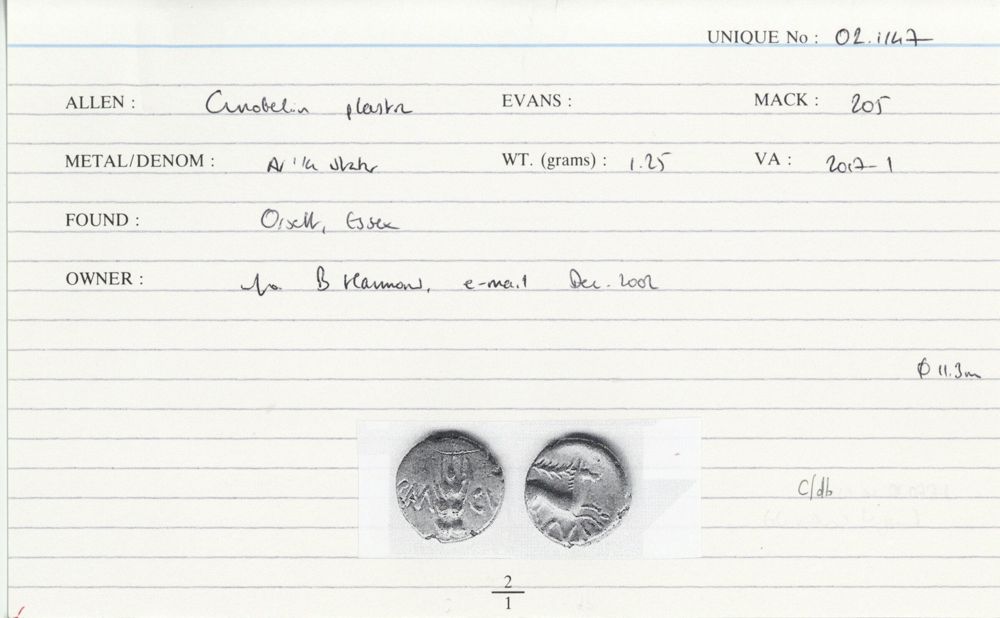 UNIQUE No : 02.1147
ALLEN : Cunobelin plastic EVANS : MACK : 205
METAL/DENOM : 1/4 stater WT. (grams) : 1.25 VA : 2017-1
FOUND : Orsett, Essex
OWNER : B Hammond, e-mail Dec. 2002
Ø 11.3m
CAM CV
C/db
2
1